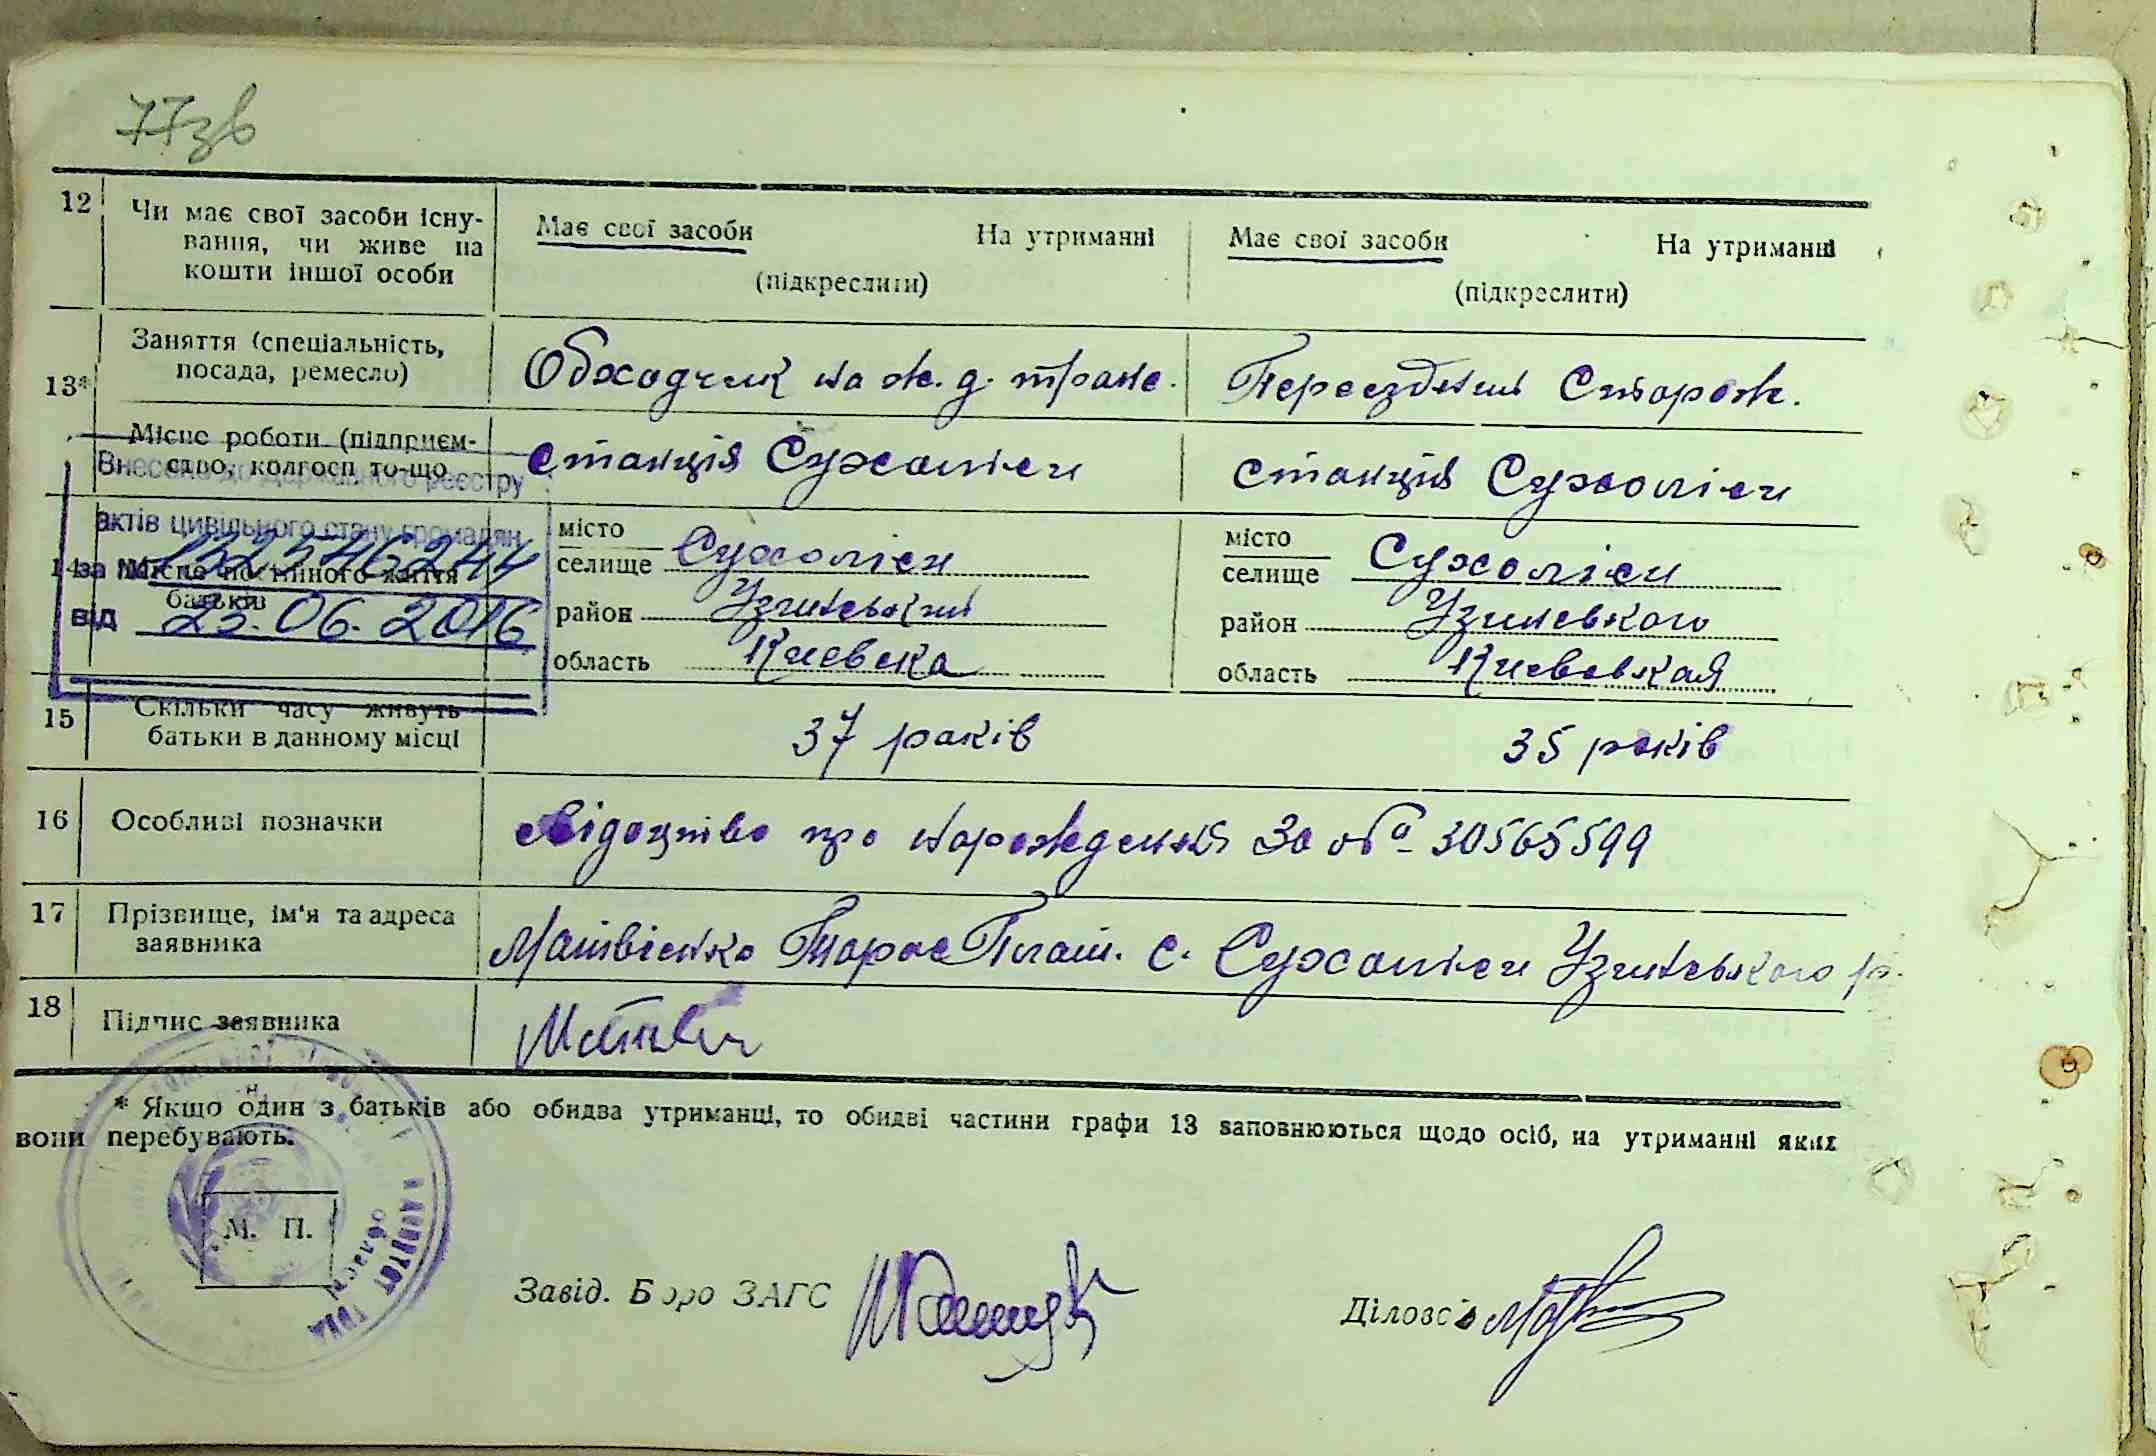 77зв
12 Чи має свої засоби існу-
вання, чи живе на
кошти іншої особи
Має свої засоби На утриманні
(підкреслити)
Має свої засоби На утриманні
(підкреслити)
13* Заняття (спеціальність,
посада, ремесло)
Обходчик на ж. д. транс.
Переездный Сторож.
Місце роботи (підприєм-
ство, колгосп то-що
станція Сухоліси
станция Сухоліси
Внесено до Державного реєстру
актів цивільного стану громадян
за №
від 23.06.2016
14 Місце постійного життя
батьків
місто
селище Сухоліси
район Узинський
область Киевска
місто
селище Сухоліси
район Узиневского
область Киевовкая
15 Скільки часу живуть
батьки в данному місці
37 раків
35 років
16 Особливі позначки
Свідоцтво про народження За № 30565599
17 Прізвище, ім'я та адреса
заявника
Матвієнко Тарас с. Сухоліси Узинського р.
18 Підпис заявника
* Якщо один з батьків або обидва утриманці, то обидві частини графи 13 заповнюються щодо осіб, на утриманні яких
вони перебувають.
М. П.
Завід. Бюро ЗАГС
Діловод